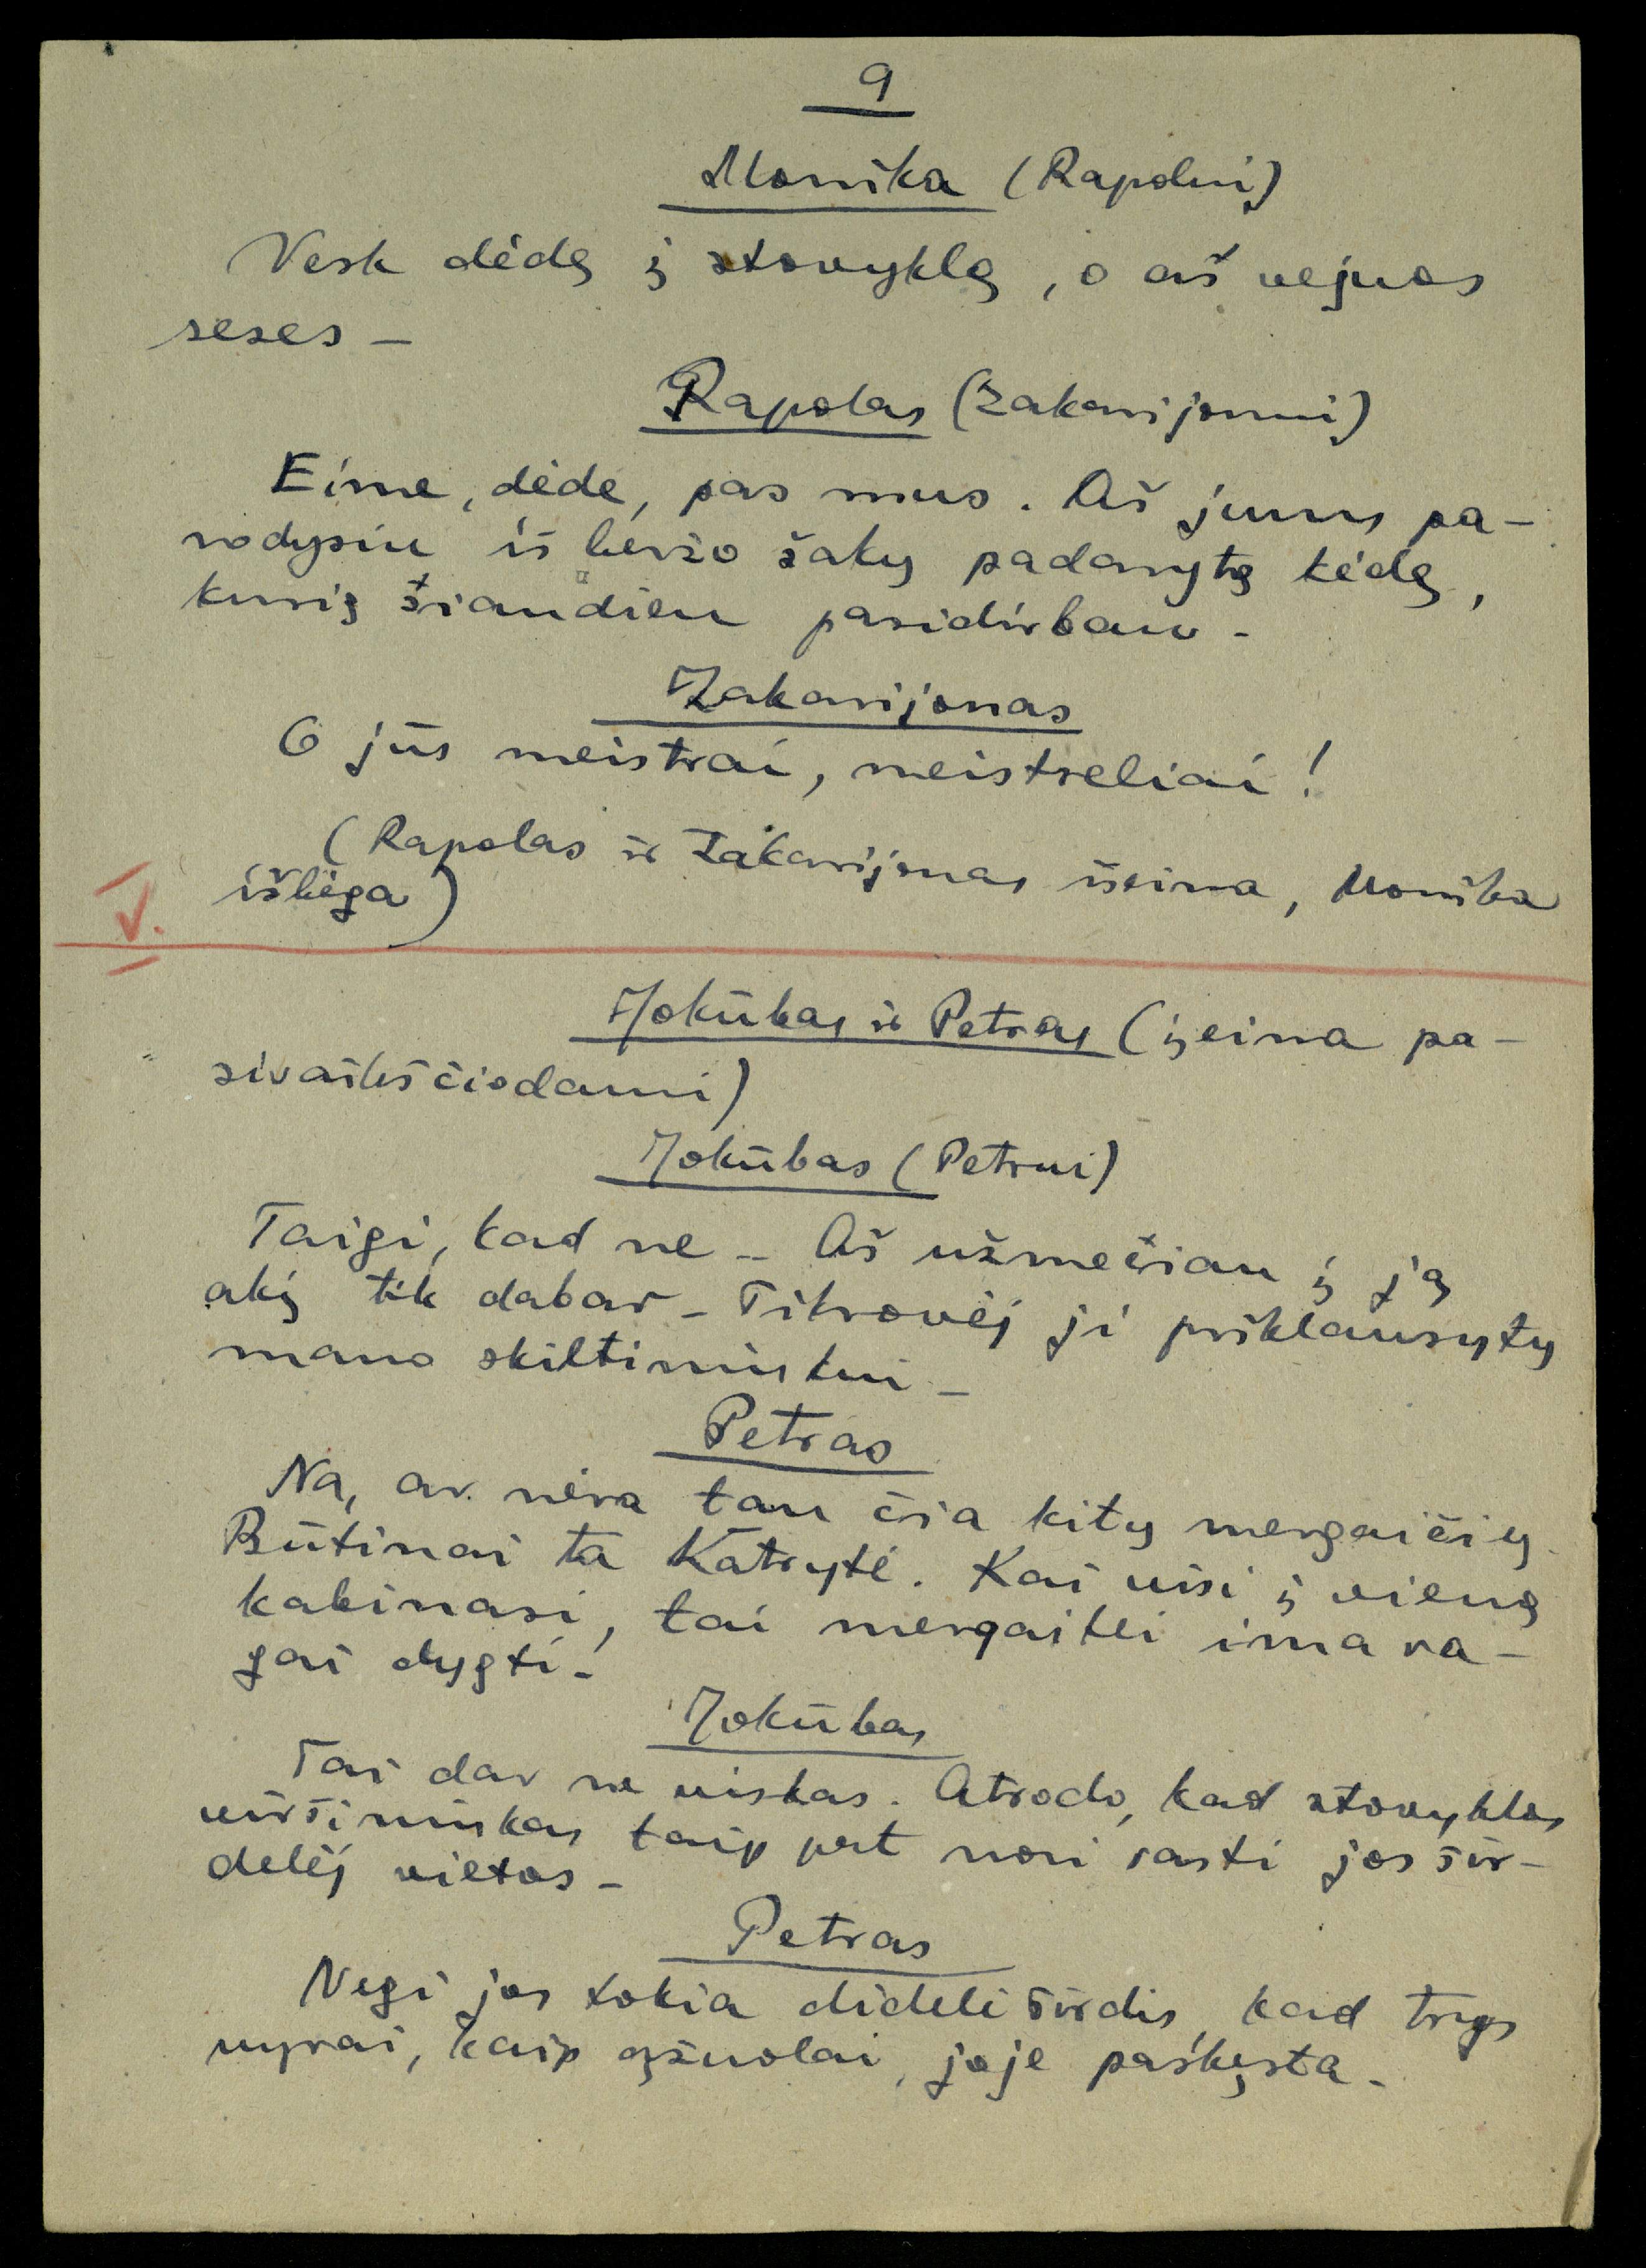 9
Monika (Rapolui)
Vesk dėdę į stovyklą, o aš vejuos
seses –
Rapolas (Zakarijonui)
Eime, dėde, pas mus. Aš jums pa-
rodysiu iš beržo šakų padarytą kėdę,
kurią šiandien pasidirbau –
Zakarijonas
O jūs meistrai, meistreliai!
(Rapolas ir Zakarijonas išeina, Monika
išbėga)
V.
Jokūbas ir Petras (įeina pa-
sivaikščiodami)
Jokūbas (Petrui)
Taigi, kad ne – Aš užmečiau į ją
akį tik dabar – Tikrovėj ji priklausytų
mano skiltininkui –
Petras
Na, ar nėra tau čia kitų mergaičių.
Būtinai ta Katrytė. Kai visi į vieną
kabinasi, tai mergaitei ima ra-
gai dygti –
Jokūbas
Tai dar ne viskas. Atrodo, kad stovyklos
viršininkas taip pat nori rasti jos šir-
delėj vietos –
Petras
Negi jos tokia didelė širdis, kad trys
vyrai, kaip ąžuolai, joje paskęsta –